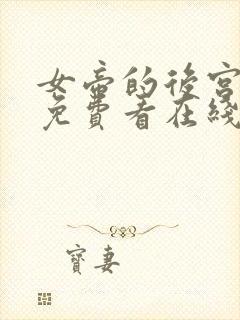 女帝的後宮
免費看在綫
寶妻